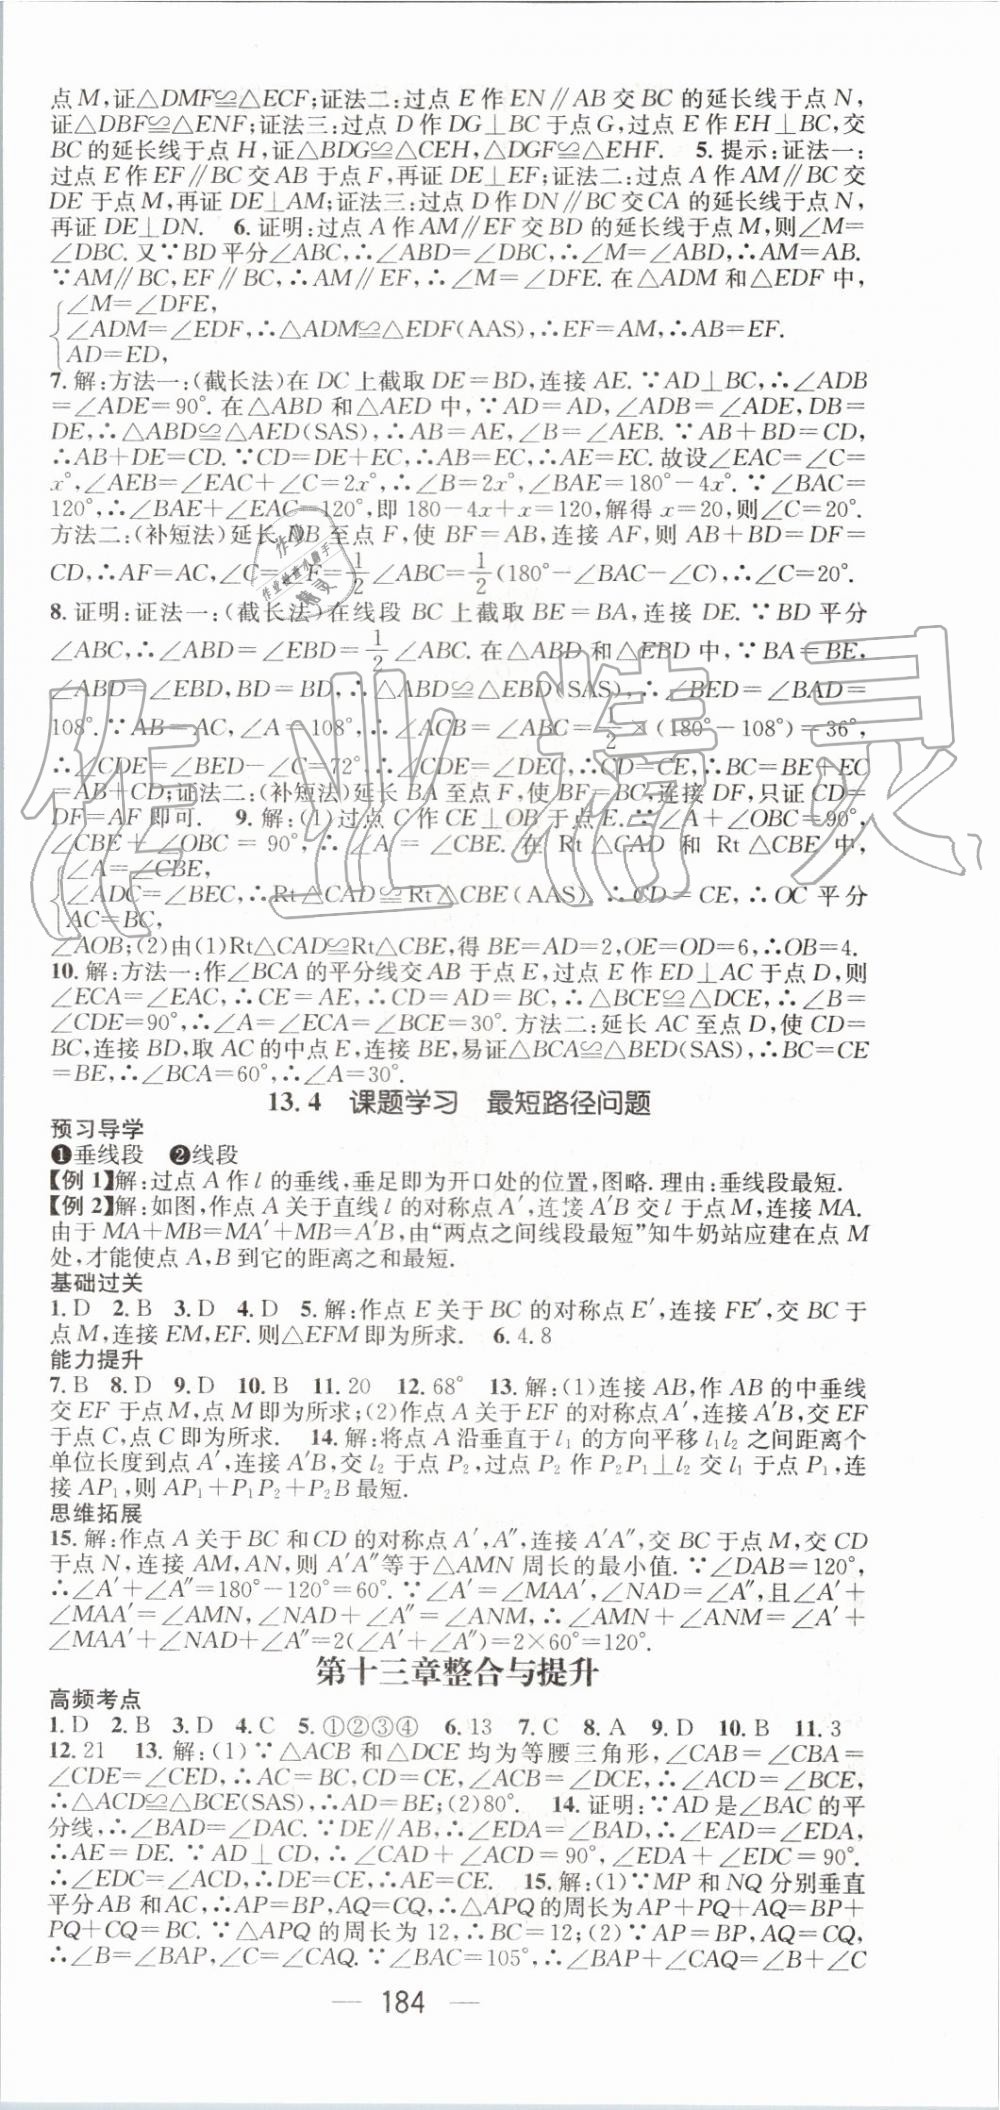 点M,证△DMF≌△ECF;证法二:过点 E 作 EN∥AB 交 BC 的延长线于点 N,
证△DBF≌△ENF;证法三:过点 D 作 DG⊥BC 于点 G,过点 E 作 EH⊥BC,交
BC 的延长线于点 H,证△BDG≌△CEH,△DGF≌△EHF. 5. 提示:证法一:
过点 E 作 EF∥BC 交 AB 于点 F,再证 DE⊥EF;证法二:过点 A 作 AM∥BC 交
DE 于点 M,再证 DE⊥AM;证法三:过点 D 作 DN∥BC 交 CA 的延长线于点 N,
再证 DE⊥DN. 6. 证明:过点 A 作 AM∥EF 交 BD 的延长线于点 M,则∠M=
∠DBC. 又∵BD 平分∠ABC,∴∠ABD=∠DBC,∴∠M=∠ABD,∴AM=AB.
∵AM∥BC,EF∥BC,∴AM∥EF,∴∠M=∠DFE. 在△ADM 和△EDF 中,
∠M=∠DFE,
∠ADM=∠EDF,∴△ADM≌△EDF(AAS),∴EF=AM,∴AB=EF.
AD=ED,
7. 解:方法一:(截长法)在 DC 上截取 DE=BD,连接 AE. ∵AD⊥BC,∴∠ADB
=∠ADE=90°. 在△ABD 和△AED 中,∵AD=AD,∠ADB=∠ADE,DB=
DE,∴△ABD≌△AED(SAS),∴AB=AE,∠B=∠AEB. ∵AB+BD=CD,
∴AB+DE=CD. ∵CD=DE+EC,∴AB=EC,∴AE=EC. 故设∠EAC=∠C=
x°,∠AEB=∠EAC+∠C=2x°,∴∠B=2x°,∠BAE=180°-4x°. ∵∠BAC=
120°,∴∠BAE+∠EAC=120°,即 180-4x+x=120,解得 x=20,则∠C=20°.
方法二:(补短法)延长 DB 至点 F,使 BF=AB,连接 AF,则 AB+BD=DF=
CD,∴AF=AC,∠C=∠F=1/2∠ABC=1/2(180°-∠BAC-∠C),∴∠C=20°.
8. 证明:证法一:(截长法)在线段 BC 上截取 BE=BA,连接 DE. ∵BD 平分
∠ABC,∴∠ABD=∠EBD=1/2∠ABC. 在△ABD 和△EBD 中,∵BA=BE,
∠ABD=∠EBD,BD=BD,∴△ABD≌△EBD(SAS),∴∠BED=∠BAD=
108°. ∵AB=AC,∠A=108°,∴∠ACB=∠ABC=1/2×(180°-108°)=36°,
∴∠CDE=∠BED-∠ACB=72°,∴∠CDE=∠DEC,∴CD=CE,∴BC=BE+EC
=AB+CD;证法二:(补短法)延长 BA 至点 F,使 BF=BC,连接 DF,只证 CD=
DF=AF 即可. 9. 解:(1)过点 C 作 CE⊥OB 于点 E. ∵∠A+∠OBC=90°,
∠CBE+∠OBC=90°,∴∠A=∠CBE. 在 Rt△CAD 和 Rt△CBE 中,
∠A=∠CBE,
∠ADC=∠BEC,∴Rt△CAD≌Rt△CBE(AAS),∴CD=CE,∴OC 平分
AC=BC,
∠AOB;(2)由(1)Rt△CAD≌Rt△CBE,得 BE=AD=2,OE=OD=6,∴OB=4.
10. 解:方法一:作∠BCA 的平分线交 AB 于点 E,过点 E 作 ED⊥AC 于点 D,则
∠ECA=∠EAC,∴CE=AE,∴CD=AD=BC,∴△BCE≌△DCE,∴∠B=
∠CDE=90°,∴∠A=∠ECA=∠BCE=30°. 方法二:延长 AC 至点 D,使 CD=
BC,连接 BD,取 AC 的中点 E,连接 BE,易证△BCA≌△BED(SAS),∴BC=CE
=BE,∴∠BCA=60°,∴∠A=30°.
13.4 课题学习 最短路径问题
预习导学
❶垂线段 ❷线段
【例 1】解:过点 A 作 l 的垂线,垂足即为开口处的位置,图略. 理由:垂线段最短.
【例 2】解:如图,作点 A 关于直线 l 的对称点 A′,连接 A′B 交 l 于点 M,连接 MA.
由于 MA+MB=MA′+MB=A′B,由“两点之间线段最短”知牛奶站应建在点 M
处,才能使点 A,B 到它的距离之和最短.
基础过关
1. D 2. B 3. D 4. D 5. 解:作点 E 关于 BC 的对称点 E′,连接 FE′,交 BC 于
点 M,连接 EM,EF. 则△EFM 即为所求. 6. 4.8
能力提升
7. B 8. D 9. D 10. B 11. 20 12. 68° 13. 解:(1)连接 AB,作 AB 的中垂线
交 EF 于点 M,点 M 即为所求;(2)作点 A 关于 EF 的对称点 A′,连接 A′B,交 EF
于点 C,点 C 即为所求. 14. 解:将点 A 沿垂直于 l₁ 的方向平移 l₁l₂ 之间距离个
单位长度到点 A′,连接 A′B,交 l₂ 于点 P₂,过点 P₂ 作 P₂P₁⊥l₂ 交 l₁ 于点 P₁,连
接 AP₁,则 AP₁+P₁P₂+P₂B 最短.
思维拓展
15. 解:作点 A 关于 BC 和 CD 的对称点 A′,A″,连接 A′A″,交 BC 于点 M,交 CD
于点 N,连接 AM,AN,则 A′A″等于△AMN 周长的最小值. ∵∠DAB=120°,
∴∠A′+∠A″=180°-120°=60°. ∵∠A′=∠MAA′,∠NAD=∠A″,且∠A′+
∠MAA′=∠AMN,∠NAD+∠A″=∠ANM,∴∠AMN+∠ANM=∠A′+
∠MAA′+∠NAD+∠A″=2(∠A′+∠A″)=2×60°=120°.
第十三章整合与提升
高频考点
1. D 2. B 3. D 4. C 5. ①②③④ 6. 13 7. C 8. A 9. D 10. B 11. 3
12. 21 13. 解:(1)∵△ACB 和△DCE 均为等腰三角形,∠CAB=∠CBA=
∠CDE=∠CED,∴AC=BC,CD=CE,∠ACB=∠DCE,∴∠ACD=∠BCE,
∴△ACD≌△BCE(SAS),∴AD=BE;(2)80°. 14. 证明:∵AD 是∠BAC 的平
分线,∴∠BAD=∠DAC. ∵DE∥AB,∴∠EDA=∠BAD,∴∠EAD=∠EDA,
∴AE=DE. ∵AD⊥CD,∴∠CAD+∠ACD=90°,∠EDA+∠EDC=90°.
∴∠EDC=∠ACD,∴DE=CE,∴AE=CE. 15. 解:(1)∵MP 和 NQ 分别垂直
平分 AB 和 AC,∴AP=BP,AQ=CQ,∴△APQ 的周长为 AP+PQ+AQ=BP+
PQ+CQ=BC. ∵△APQ 的周长为 12,∴BC=12;(2)∵AP=BP,AQ=CQ,
∴∠B=∠BAP,∠C=∠CAQ. ∵∠BAC=105°,∴∠BAP+∠CAQ=∠B+∠C
— 184 —
作业精灵